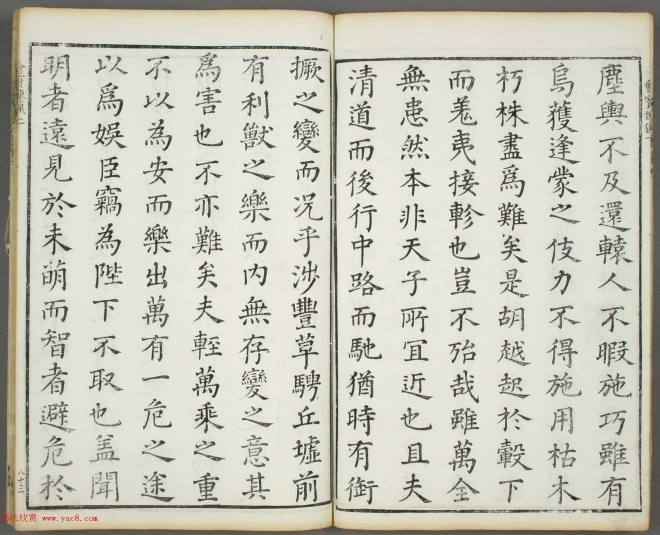 塵輿不及還轅人不暇施巧雖有
烏獲逢蒙之伎力不得施用枯木
朽株盡爲難矣是胡越起於轂下
而羗夷接軫也豈不殆哉雖萬全
無患然本非天子所冝近也且夫
清道而後行中路而馳猶時有銜
橛之變而况乎涉豐草騁丘墟前
有利獸之樂而内無存變之意其
爲害也不亦難矣夫輕萬乘之重
不以為安而樂出萬有一危之途
以爲娛臣竊為陛下不取也盖聞
明者遠見於未萌而智者避危於
八十三
www.yac8.com